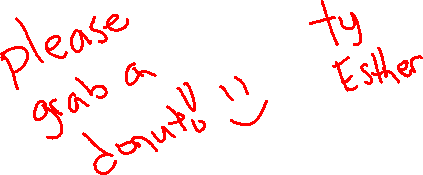 please
grab a
donut!! :)
ty
Esther